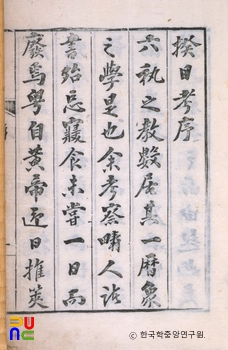 揆日考序
六執之教數居其一曆象
之學是也余考察疇人諸
書給忘寢食未嘗一日而
廢焉粤自黃帝迎日推莢
© 한국학중앙연구원